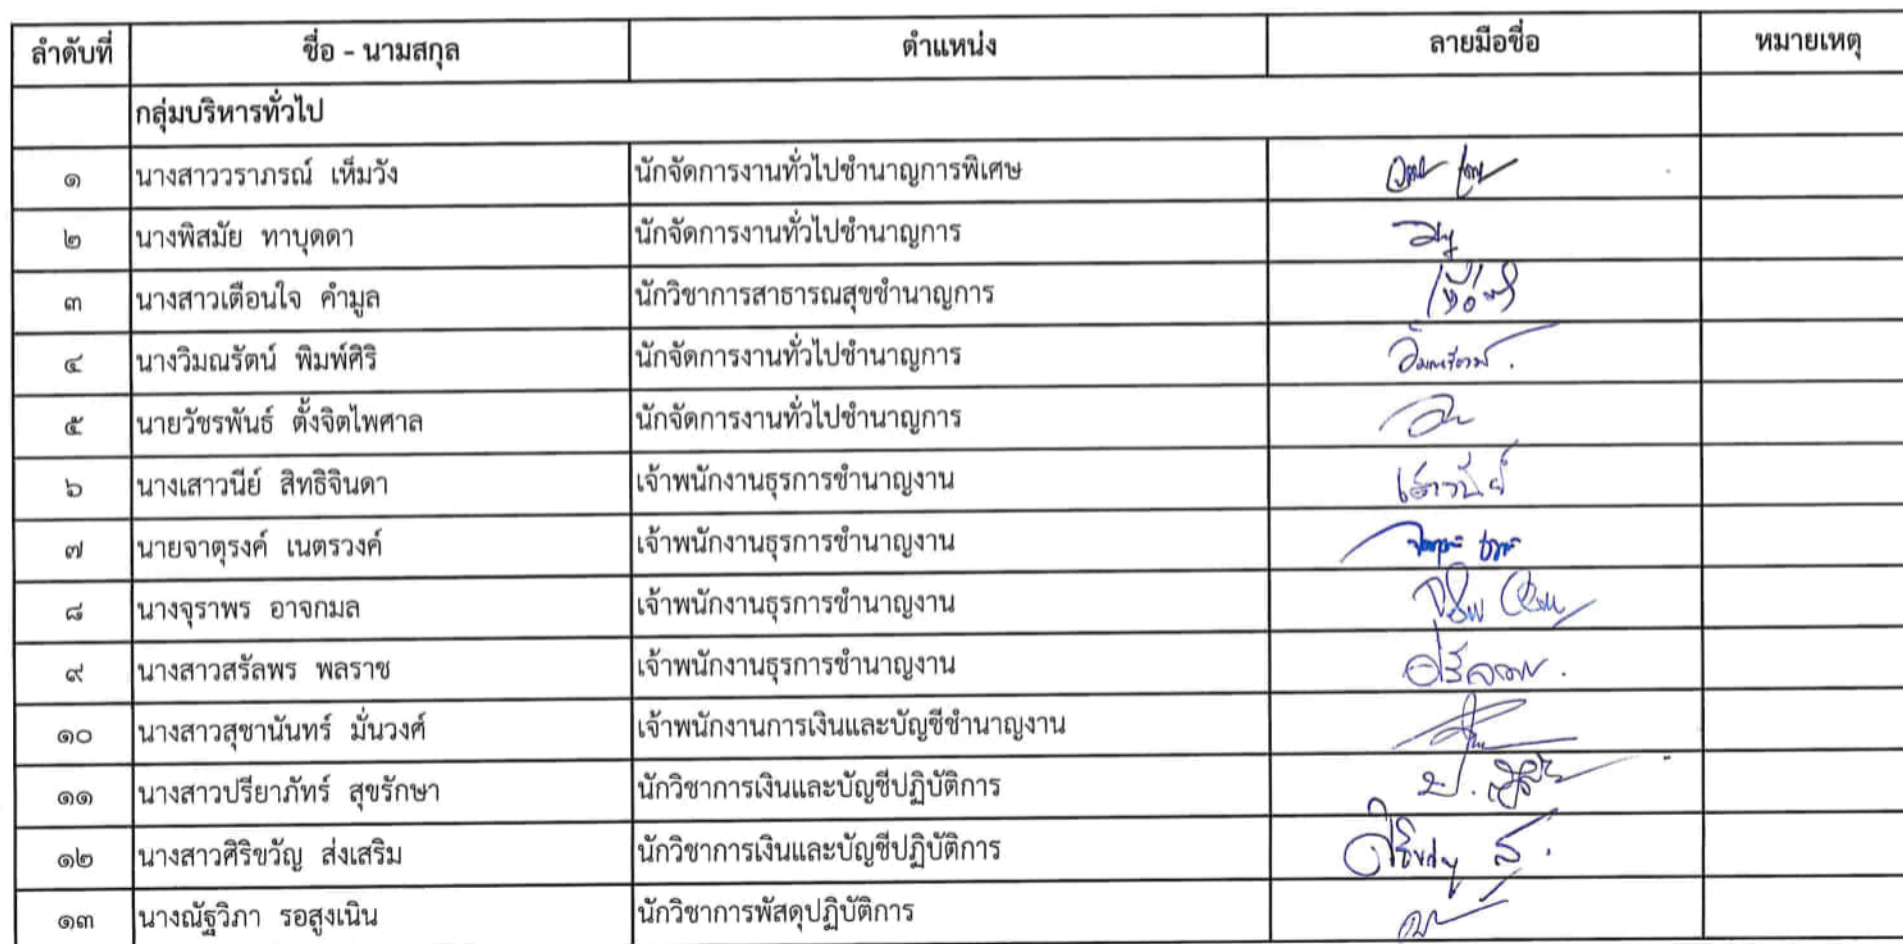 ลำดับที่ ชื่อ - นามสกุล ตำแหน่ง ลายมือชื่อ หมายเหตุ
กลุ่มบริหารทั่วไป
๑ นางสาววราภรณ์ เห็มวัง นักจัดการงานทั่วไปชำนาญการพิเศษ
๒ นางพิสมัย ทาบุดดา นักจัดการงานทั่วไปชำนาญการ
๓ นางสาวเตือนใจ คำมูล นักวิชาการสาธารณสุขชำนาญการ
๔ นางวิมณรัตน์ พิมพ์ศิริ นักจัดการงานทั่วไปชำนาญการ
๕ นายวัชรพันธ์ ตั้งจิตไพศาล นักจัดการงานทั่วไปชำนาญการ
๖ นางเสาวนีย์ สิทธิจินดา เจ้าพนักงานธุรการชำนาญงาน เสาวนีย์
๗ นายจาตุรงค์ เนตรวงค์ เจ้าพนักงานธุรการชำนาญงาน
๘ นางจุราพร อาจกมล เจ้าพนักงานธุรการชำนาญงาน
๙ นางสาวสรัลพร พลราช เจ้าพนักงานธุรการชำนาญงาน
๑๐ นางสาวสุชานันทร์ มั่นวงศ์ เจ้าพนักงานการเงินและบัญชีชำนาญงาน
๑๑ นางสาวปรียาภัทร์ สุขรักษา นักวิชาการเงินและบัญชีปฏิบัติการ
๑๒ นางสาวศิริขวัญ ส่งเสริม นักวิชาการเงินและบัญชีปฏิบัติการ
๑๓ นางณัฐวิภา รอสูงเนิน นักวิชาการพัสดุปฏิบัติการ